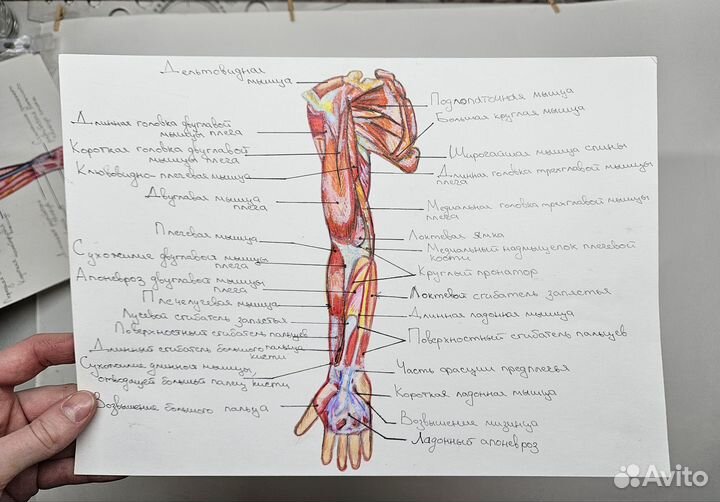 Дельтовидная
мышца
Длинная головка двуглавой
мышцы плеча
Короткая головка двуглавой
мышцы плеча
Клювовидно-плечевая мышца
Двуглавая мышца
плеча
Плечевая мышца
Сухожилие двуглавой мышцы
плеча
Апоневроз двуглавой мышцы
плеча
Плечелучевая мышца
Лучевой сгибатель запястья
Поверхностный сгибатель пальцев
Длинный сгибатель большого пальца
кисти
Сухожилие длинной мышцы,
отводящей большой палец кисти
Возвышение большого пальца
Подлопаточная мышца
Большая круглая мышца
Широчайшая мышца спины
Длинная головка трехглавой мышцы
плеча
Медиальная головка трехглавой мышцы
плеча
Локтевая ямка
Медиальный надмыщелок плечевой
кости
Круглый пронатор
Локтевой сгибатель запястья
Длинная ладонная мышца
Поверхностный сгибатель пальцев
Часть фасции предплечья
Короткая ладонная мышца
Возвышение мизинца
Ладонный апоневроз
Avito